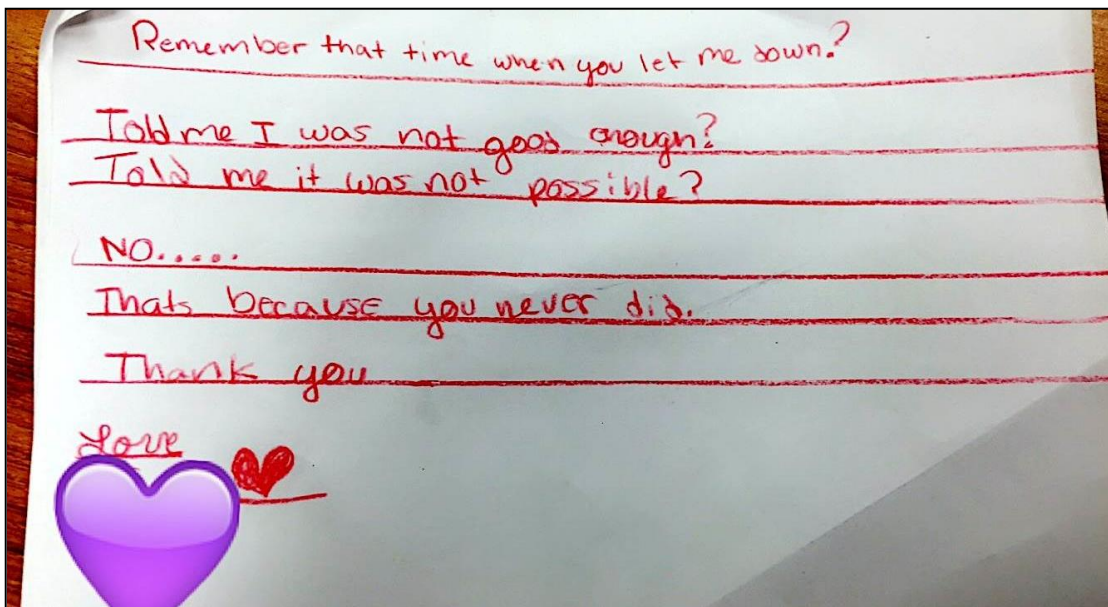 Remember that time when you let me down?
Told me I was not good enough?
Told me it was not possible?
NO.....
Thats because you never did.
Thank you
Love